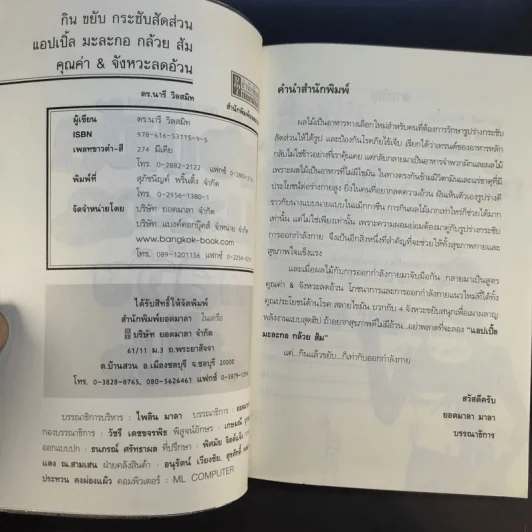 กิน ขยับ กระชับสัดส่วน
แอปเปิ้ล มะละกอ กล้วย ส้ม
คุณค่า & จังหวะลดอ้วน
ดร.นารี วิลสมิท
ผู้เขียน ดร.นารี วิลสมิท
ISBN 978-616-53115-9-5
เพลทขาวดำ-สี 274 มีเดีย
โทร. 0-2882-2122 แฟกซ์
พิมพ์ที่ สุภัชนิญค์ พริ้นติ้ง จำกัด
โทร. 0-2956-1380-1
จัดจำหน่ายโดย บริษัท ยอดมาลา จำกัด
บริษัท แบงค์คอกบุ๊คส์ จำกัด
www.bangkok-book.com
โทร. 089-1201156 แฟกซ์
ได้รับสิทธิ์ให้จัดพิมพ์
สำนักพิมพ์ยอดมาลา ในเครือ
บริษัท ยอดมาลา จำกัด
61/11 ม.3 ถ.พระยาสัจจา
ต.บ้านสวน อ.เมืองชลบุรี จ.ชลบุรี 20000
โทร. 0-3828-8765, 080-5626461 แฟกซ์
บรรณาธิการบริหาร : ไพลิน มาลา บรรณาธิการ :
กองบรรณาธิการ : วัชรี เดชขจรพิช พิสูจน์อักษร :
ออกแบบปก : ธนภรณ์ ศรัทธาผล ที่ปรึกษา :
แดง ณ.สามเสน ฝ่ายคลังสินค้า : อนุรัตน์ เวียงชัย,
ประทวน คงผ่องแผ้ว คอมพิวเตอร์ : ML COMPUTER
คำนำสำนักพิมพ์
ผลไม้เป็นอาหารทางเลือกใหม่สำหรับคนที่ต้องการรักษารูปร่างกระชับ
สัดส่วนให้ได้รูป และป้องกันโรคภัยไข้เจ็บ เรียกได้ว่าเทรนด์ของอาหารหลัก
กลับไม่ใช่ข้าวอย่างที่เราคุ้นเคย แต่กลับกลายมาเป็นอาหารจำพวกผักและผลไม้
เพราะผลไม้เป็นอาหารที่ไม่มีไขมัน ในทางตรงกันข้ามมีวิตามินและแร่ธาตุที่มี
ประโยชน์ต่อร่างกายสูง ยิ่งในคนที่อยากลดความอ้วน ฝันเห็นตัวเองรูปร่างดี
ราวกับนางแบบนายแบบในแม็กกาซีน การกินผลไม้มากเท่าไหร่ก็ช่วยได้มาก
เท่านั้น แต่ไม่ใช่เพียงเท่านั้น เพราะความผอมย่อมต้องมาคู่กับรูปร่างกระชับ
การออกกำลังกาย จึงเป็นอีกสิ่งหนึ่งที่สำคัญที่จะช่วยให้ทั้งสุขภาพกายและ
สุขภาพใจแข็งแรง
และเมื่อผลไม้กับการออกกำลังกายมาจับมือกัน กลายมาเป็นสูตร
คุณค่า & จังหวะลดอ้วน โภชนาการและการออกกำลังกายแนวใหม่ที่ได้ทั้ง
คุณประโยชน์ต้านโรค สลายไขมัน บวกกับ 4 จังหวะขยับสนุกเพื่อเผาผลาญ
พลังงานแบบสุดฮิป ถ้าอยากสุขภาพดีไม่มีอ้วน...อย่าพลาดที่จะลอง "แอปเปิ้ล
มะละกอ กล้วย ส้ม"
แค่...กินแล้วขยับ...ก็เท่ากับออกกำลังกาย
สวัสดีครับ
ยอดมาลา มาลา
บรรณาธิการ